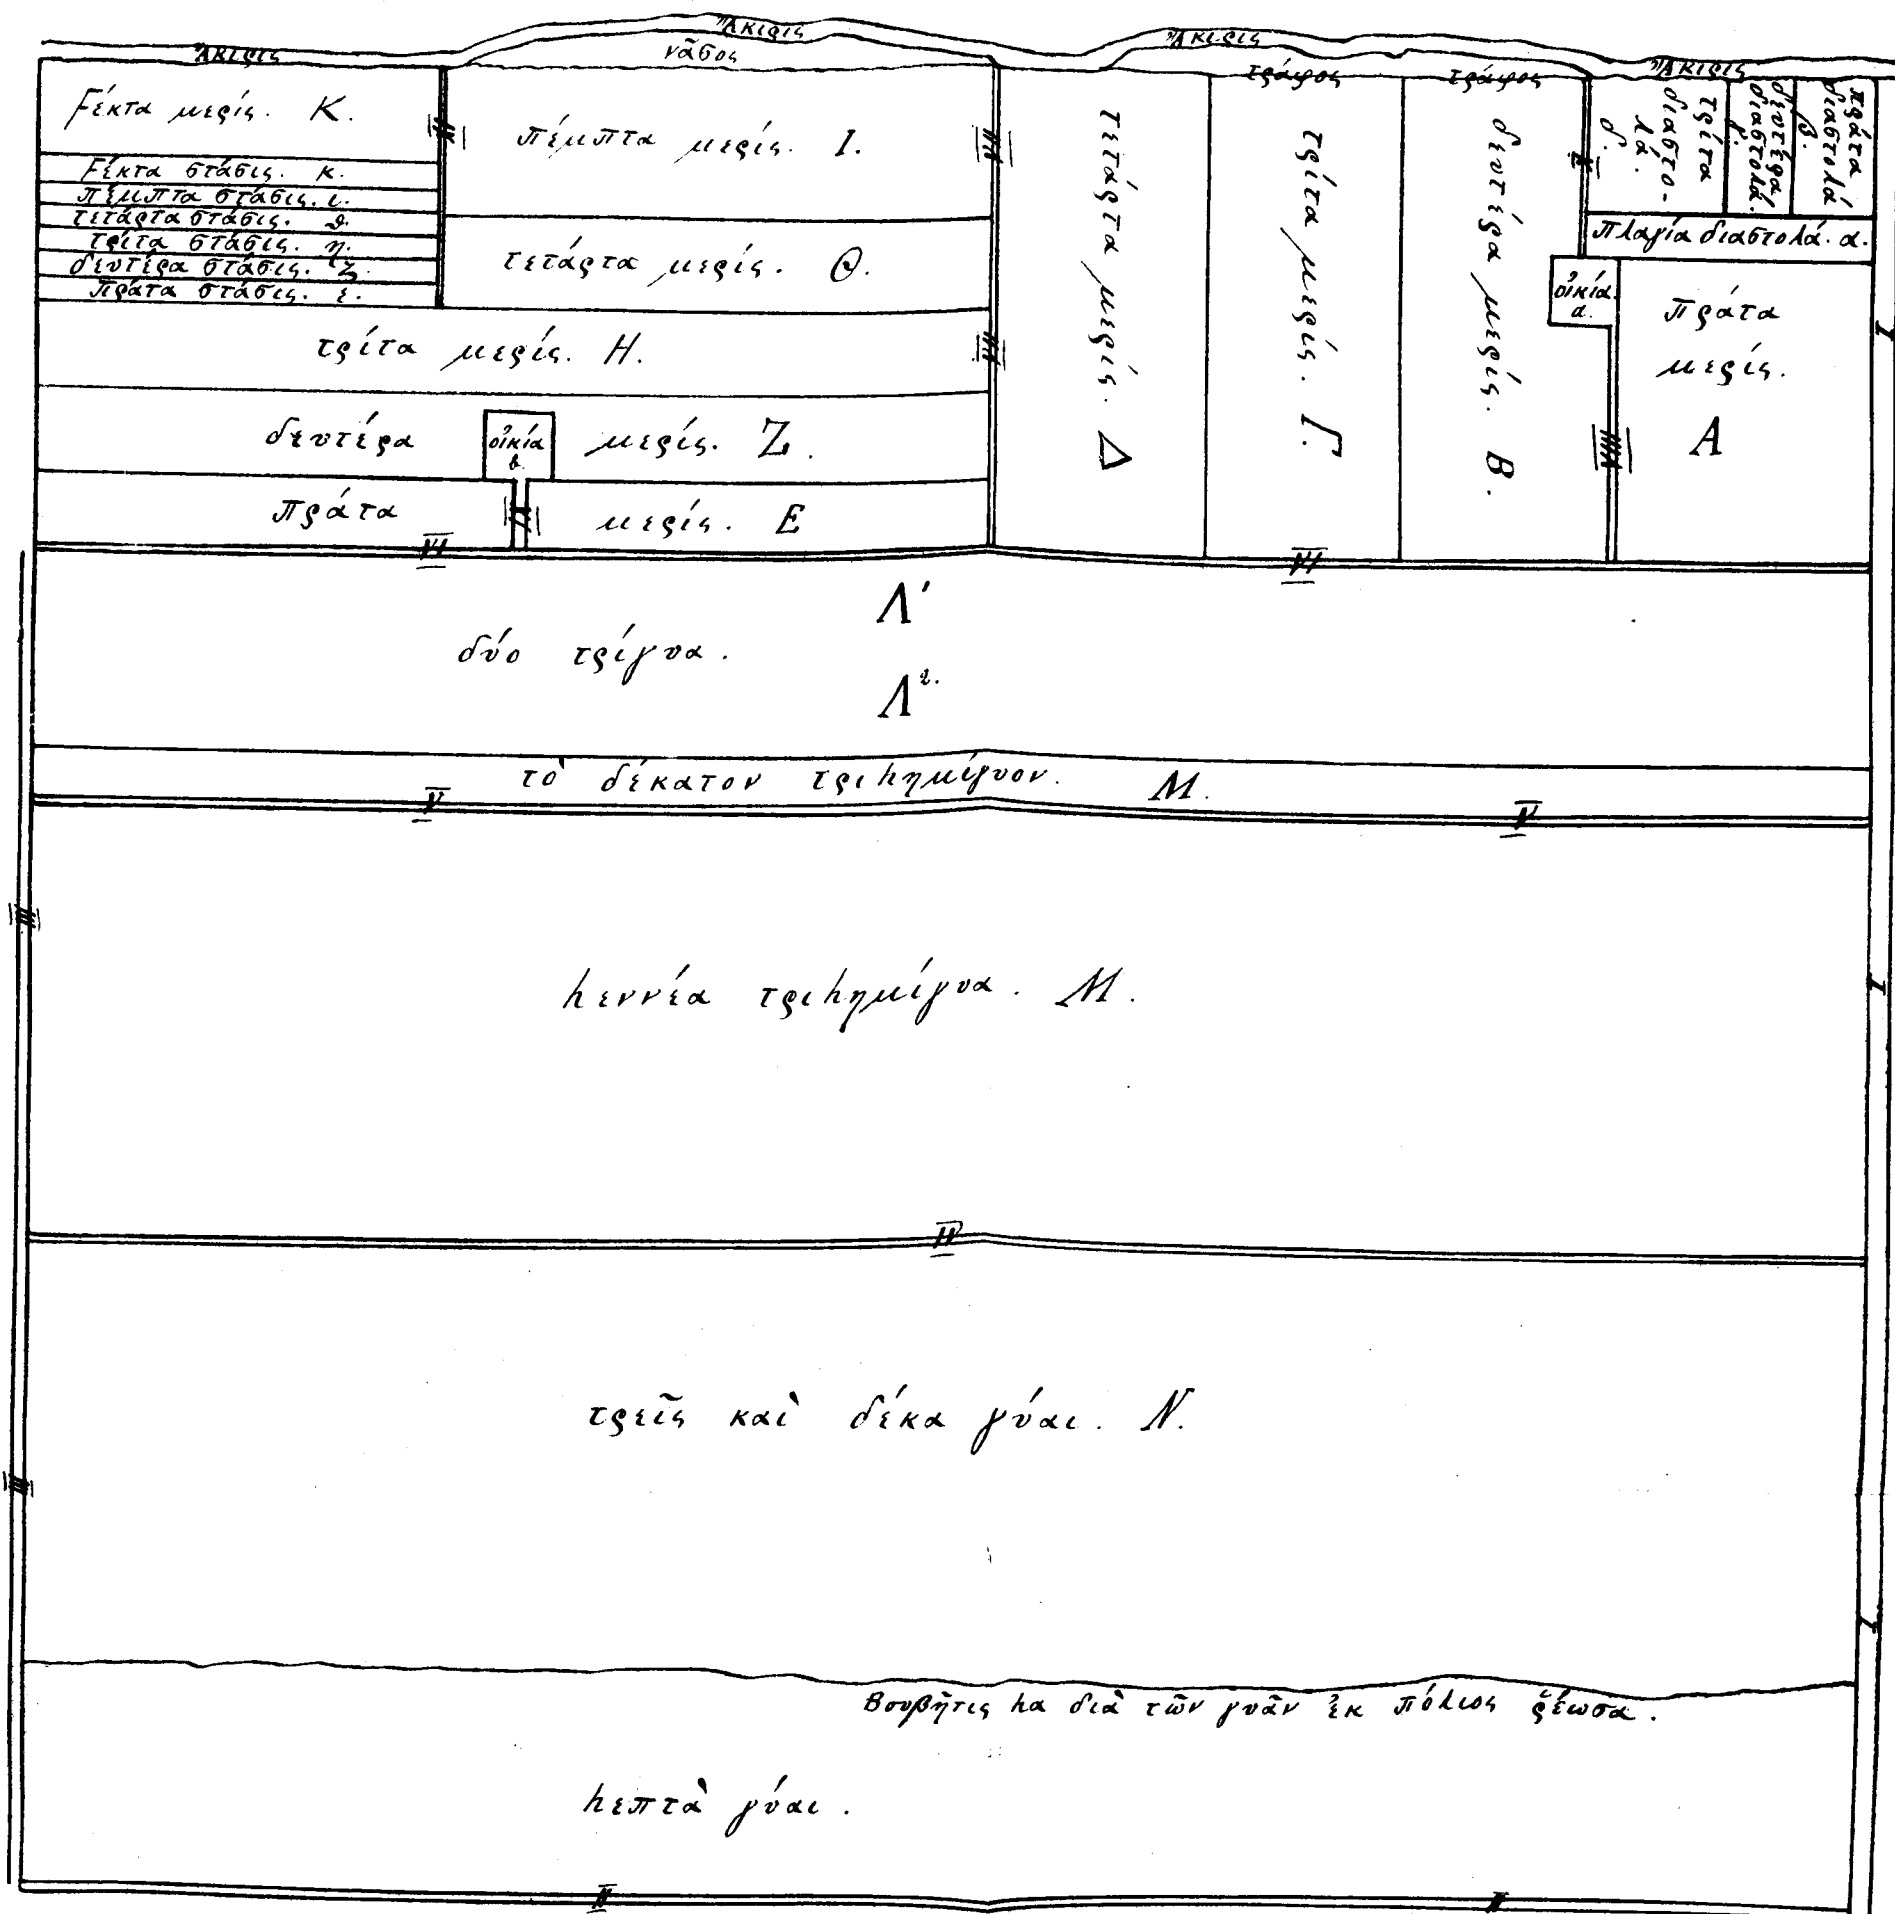 Ἄκιρις
Ἄκιρις
Ἄκιρις
Ἄκιρις
νᾶσος
τράφος
τράφος
Ϝέκτα μερίς. Κ.
Ϝέκτα στάσις. κ.
πέμπτα στάσις. ι.
τετάρτα στάσις. θ.
τρίτα στάσις. η.
δευτέρα στάσις. ζ.
πράτα στάσις. ε.
III
πέμπτα μερίς. Ι.
τετάρτα μερίς. Θ.
τρίτα μερίς. Η.
δευτέρα μερίς. Ζ.
οἰκία
β.
πράτα μερίς. Ε
τετάρτα μερίς. Δ
τρίτα μερίς. Γ.
δευτέρα μερίς. Β.
τρίτα
διαστο-
λά.
δ.
δευτέρα
διαστολά.
γ.
πράτα
διαστολά
β.
πλαγία διαστολά. α.
οἰκία.
α.
πράτα
μερίς.
Α
I
VI
VI
Λ¹
δύο τρίγυα.
Λ².
τὸ δέκατον τριhημίγυον. Μ.
V
V
III
hεννέα τριhημίγυα. Μ.
I
IV
τρεῖς καὶ δέκα γύαι. Ν.
III
I
Βουβῆτις hα διὰ τῶν γυᾶν ἐκ πόλιος ῥέωσα.
hεπτὰ γύαι.
II
II